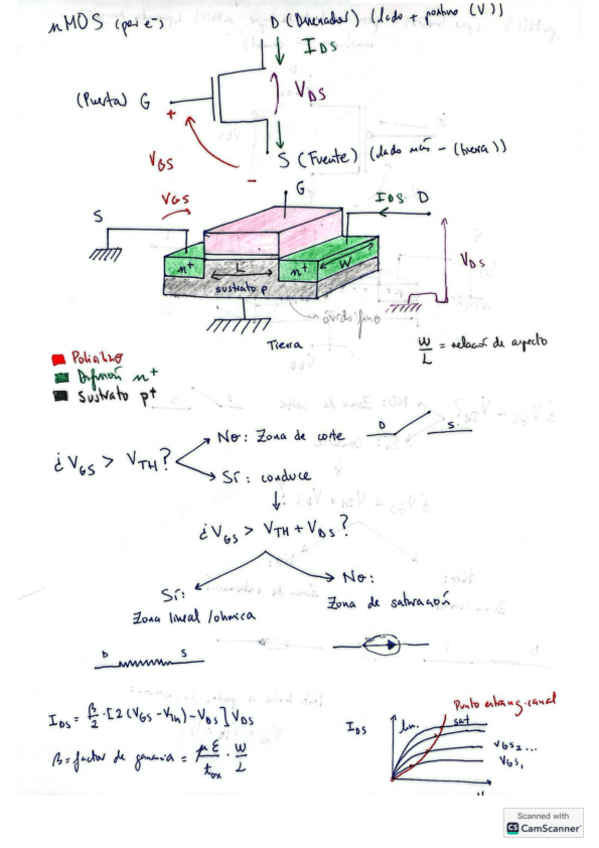 nMOS (por e⁻)
D (Drenador) (lado + positivo (V))
IDS
(Puerta) G
+
VDS
VGS
-
S (Fuente) (lado más - (tierra))
G
VGS
IDS D
S
n+
L
n+
W
VDS
sustrato p
óxido fino
Tierra
W/L = relación de aspecto
Polisilicio
Difusión n+
Sustrato p+
¿VGS > VTH?
No: Zona de corte
D
S
Sí: conduce
¿VGS > VTH + VDS?
Sí:
Zona lineal/ohmica
No:
Zona de saturación
D
S
IDS = β/2 · [2(VGS - VTH) - VDS] VDS
β = factor de ganancia = με/tox · W/L
Punto estrang. canal
IDS
lin.
sat
VGS2...
VGS1
Scanned with
CS CamScanner